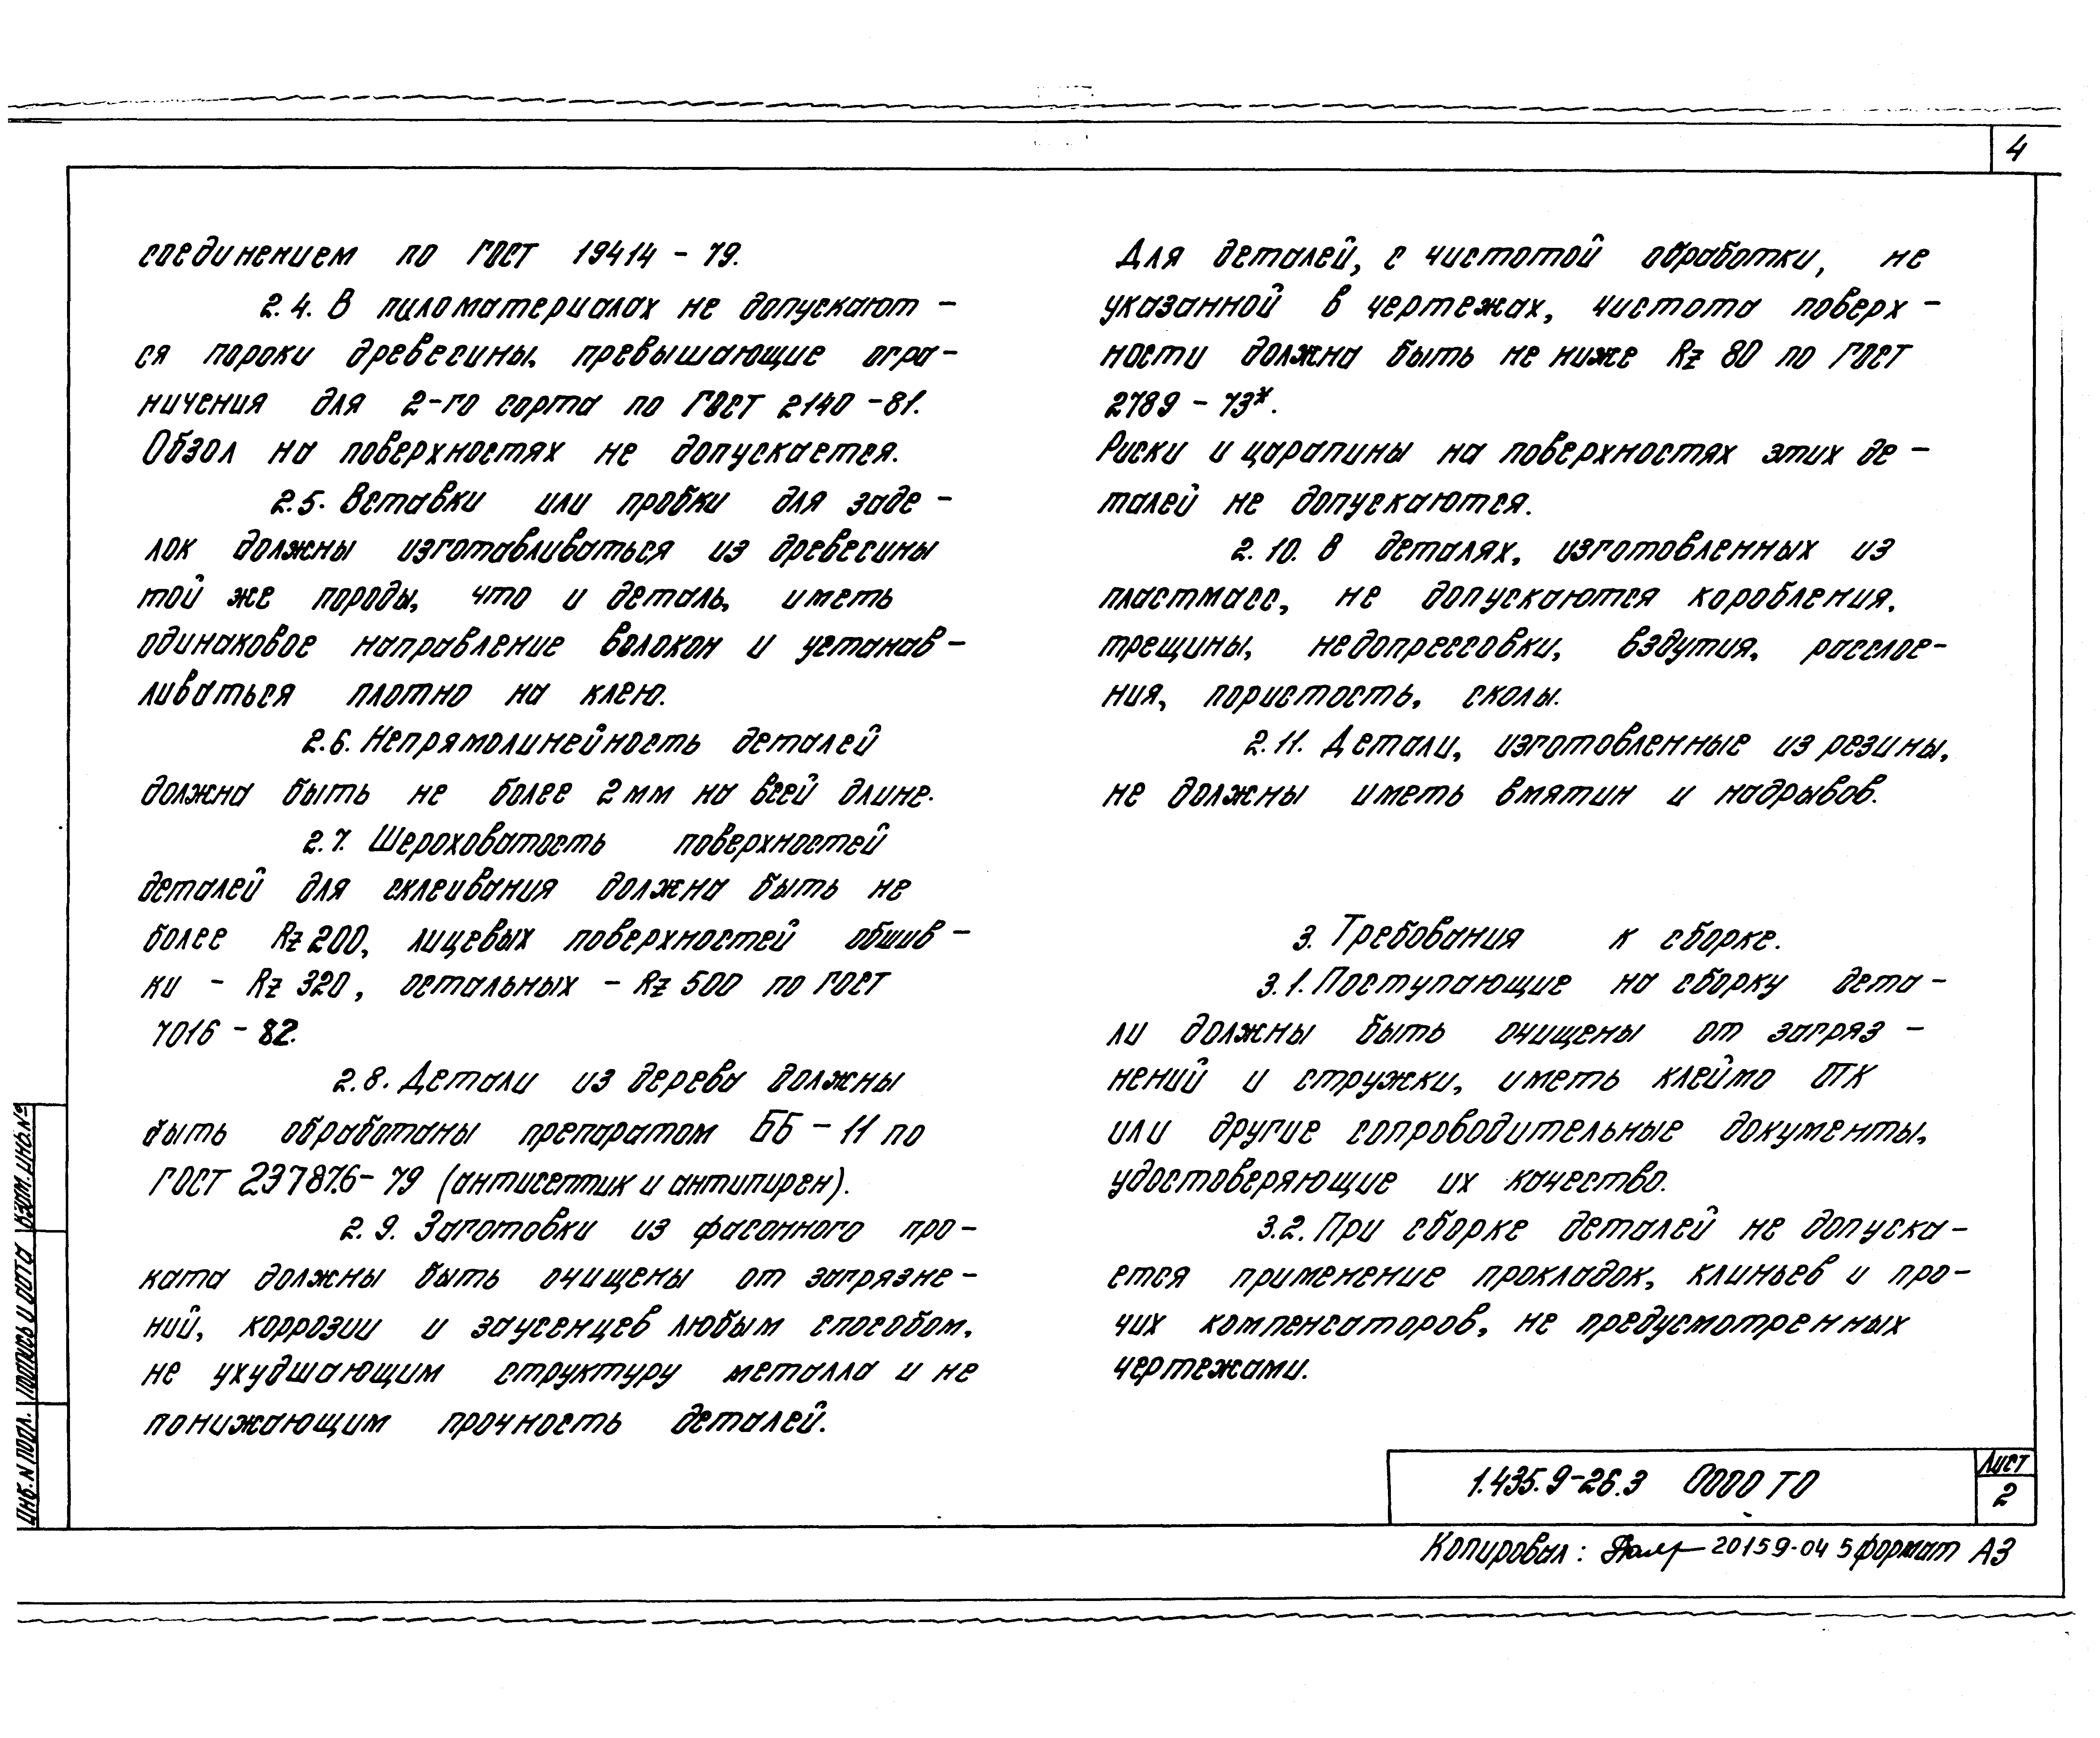 4
соединением по ГОСТ 19414 - 79.
2.4. В пиломатериалах не допускают -
ся пороки древесины, превышающие огра-
ничения для 2-го сорта по ГОСТ 2140 -81.
Обзол на поверхностях не допускается.
2.5. Вставки или пробки для заде -
лок должны изготавливаться из древесины
той же породы, что и деталь, иметь
одинаковое направление волокон и устанав-
ливаться плотно на клею.
2.6. Непрямолинейность деталей
должна быть не более 2 мм на всей длине.
2.7. Шероховатость поверхностей
деталей для склеивания должна быть не
более Rz 200, лицевых поверхностей обшив -
ки - Rz 320, остальных - Rz 500 по ГОСТ
7016 - 82.
2.8. Детали из дерева должны
быть обработаны препаратом ББ - 11 по
ГОСТ 23787.6- 79 (антисептик и антипирен).
2.9. Заготовки из фасонного про-
ката должны быть очищены от загрязне -
ний, коррозии и заусенцев любым способом,
не ухудшающим структуру металла и не
понижающим прочность деталей.
Для деталей, с чистотой обработки, не
указанной в чертежах, чистота поверх -
ности должна быть не ниже Rz 80 по ГОСТ
2789 - 73*.
Риски и царапины на поверхностях этих де -
талей не допускаются.
2.10. В деталях, изготовленных из
пластмасс, не допускаются коробления,
трещины, недопрессовки, вздутия, расслое-
ния, пористость, сколы.
2.11. Детали, изготовленные из резины,
не должны иметь вмятин и надрывов.
3. Требования к сборке.
3.1. Поступающие на сборку дета -
ли должны быть очищены от загряз -
нений и стружки, иметь клеймо ОТК
или другие сопроводительные документы,
удостоверяющие их качество.
3.2. При сборке деталей не допуска -
ется применение прокладок, клиньев и про-
чих компенсаторов, не предусмотренных
чертежами.
Инв. N подл. Подпись и дата Взам. инв. №
1.435.9-26.3 0000 ТО
Лист
2
Копировал: 20159-04 5 формат А3